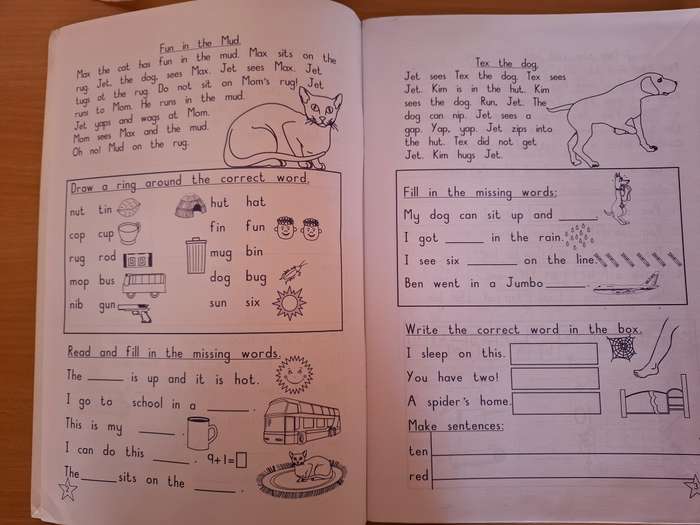 Fun in the Mud.
Max the cat has fun in the mud. Max sits on the
rug. Jet, the dog, sees Max. Jet sees Max. Jet
tugs at the rug. Do not sit on Mom's rug! Jet
runs to Mom. He runs in the mud.
Jet yaps and wags at Mom.
Mom sees Max and the mud.
Oh no! Mud on the rug.
Draw a ring around the correct word.
nut tin hut hat
cap cup fin fun
rug rod mug bin
mop bus dog bug
nib gun sun six
Read and fill in the missing words.
The ______ is up and it is hot.
I go to school in a ______ .
This is my ______ .
I can do this ______ . 9+1=
The ______ sits on the ______ .
Tex the dog.
Jet sees Tex the dog. Tex sees
Jet. Kim is in the hut. Kim
sees the dog. Run, Jet. The
dog can nip. Jet sees a
gap. Yap, yap. Jet zips into
the hut. Tex did not get
Jet. Kim hugs Jet.
Fill in the missing words:
My dog can sit up and ______
I got ______ in the rain.
I see six ______ on the line.
Ben went in a Jumbo ______ .
Write the correct word in the box.
I sleep on this.
You have two!
A spider's home.
Make sentences:
ten
red